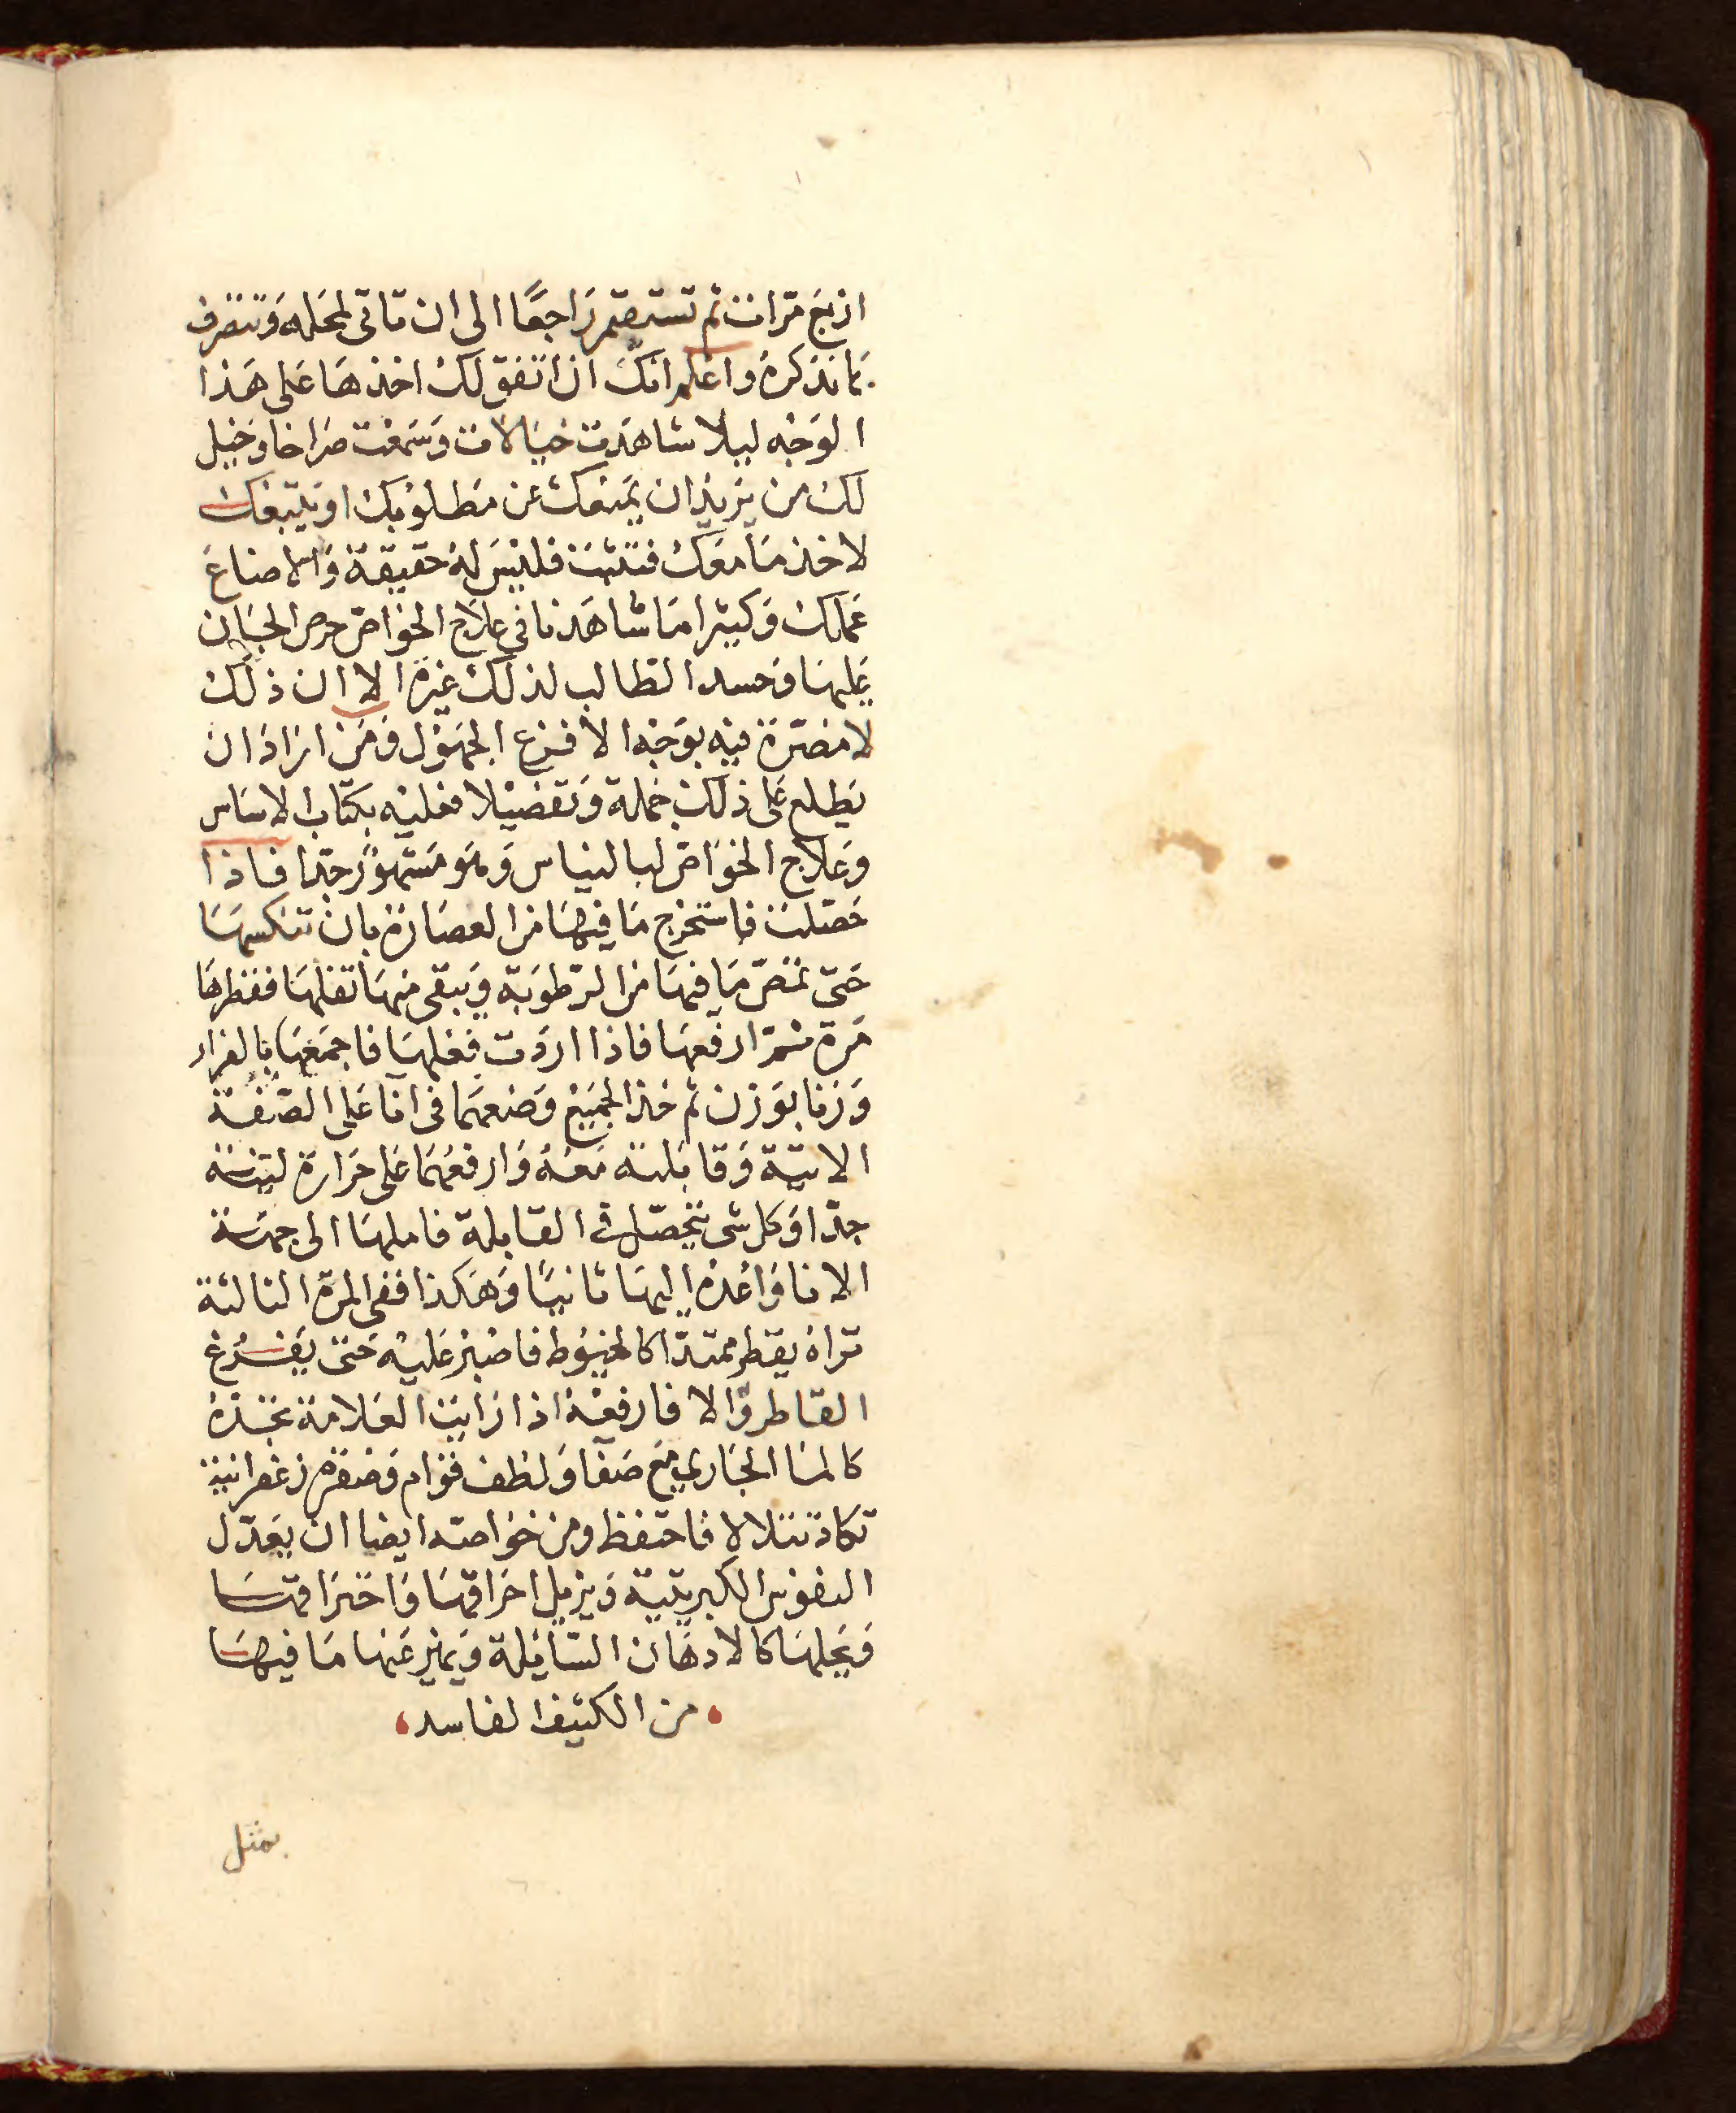 اربع مرات ثم تستقيم راجعًا الى ان تاتى لمحله وتتصرف
بما نذكره واعلم انك ان اتفق لك اخذها على هذا
الوجه ليلا شاهدت خيالات وسمعت صراخا وخيل
لك من يريد ان يمنعك عن مطلوبك او يتبعك
لاخذ ما معك فتثبت فليس له حقيقة والا ضاع
عملك وكثيرا ما شاهدنا فى علاج الخواص حرص الجان
عليها وحسد الطالب لذلك غيره الا ان ذلك
لا مضرة فيه بوجه الا فزع الجهول ومن اراد ان
يطلع على ذلك جملة وتفصيلا فعليه بكتاب الاساس
وعلاج الخواص لبالنياس وهو مشهور جدا فاذا
حصلت فاستخرج ما فيها من العصارة بان تنكسها
حتى تمص ما فيها من الرطوبة ويبقى منها ثقلها فقطرها
مرة ثم ارفعها فاذا اردت فعلها فاجمعها بالفرار
وزنا بوزن ثم خذ الجميع وضعهما فى انا على الصفة
الاتية وقابلته معه وارفعهما على حرارة لينة
جدا وكل شى يتحصل فى القابلة فاملها الى جهة
الانا واعده اليها ثانيًا وهكذا ففى المرة الثالثة
تراه يقطر ممتدا كالخيوط فاصبر عليه حتى يفرغ
القاطر والا فارفعه اذا رايت العلامة تجده
كالما الجارى مع صفا ولطف قوام وصفرة زعفرانية
تكاد تتلالا فاحتفظ ومن خواصه ايضا ان يعدل
النفوس الكبريتية ويزيل احراقها واحتراقها
ويحلها كالادهان السائلة ويميز عنها ما فيها
من الكثيف الفاسد
بمثل